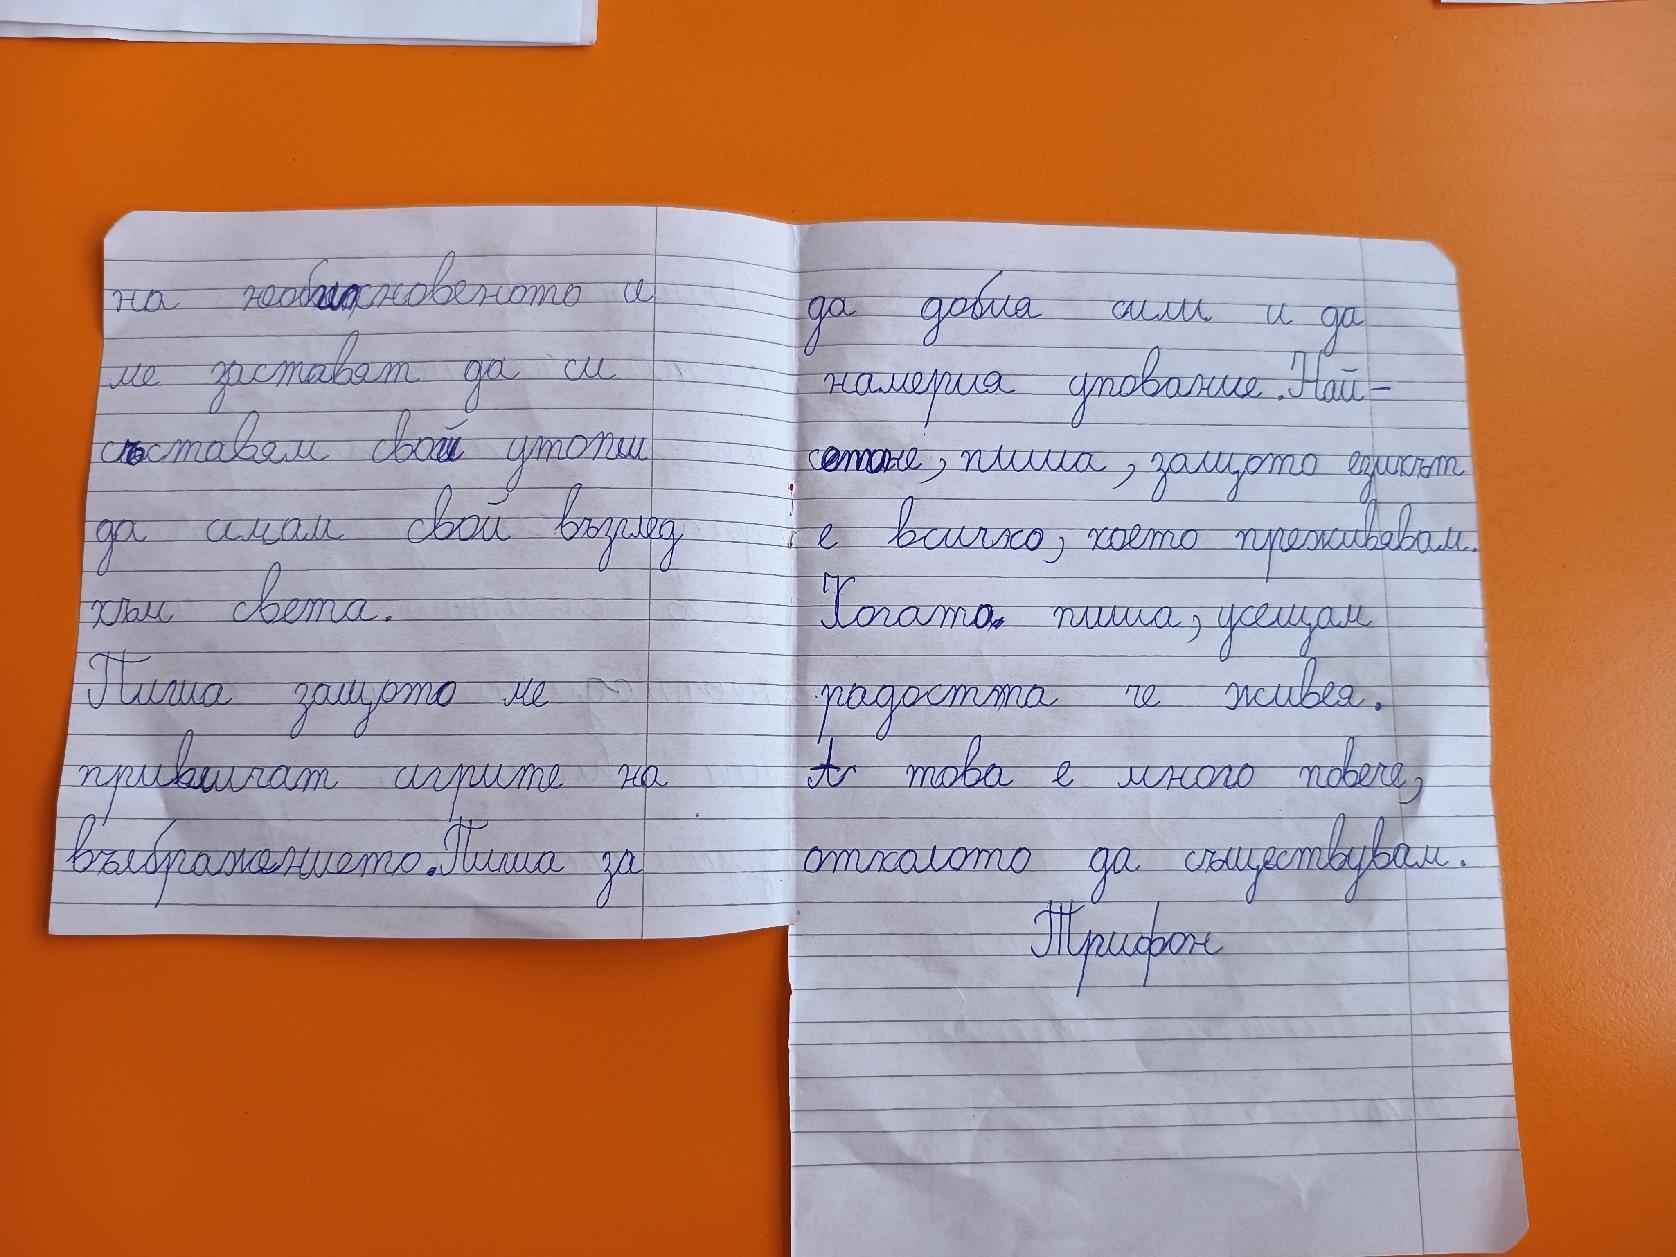 на необикновеното и
ме заставят да си
съставям свой утопии
да имам свой възглед
към света.
Пиша защото ме
привличат игрите на
въображението. Пиша за
да добия сили и да
намерия упование. Най-
сетне, пиша, защото езикът
е всичко, което преживявам.
Когато пиша, усещам
радостта че живея.
А това е много повече,
отколото да съществувам.
Трифон